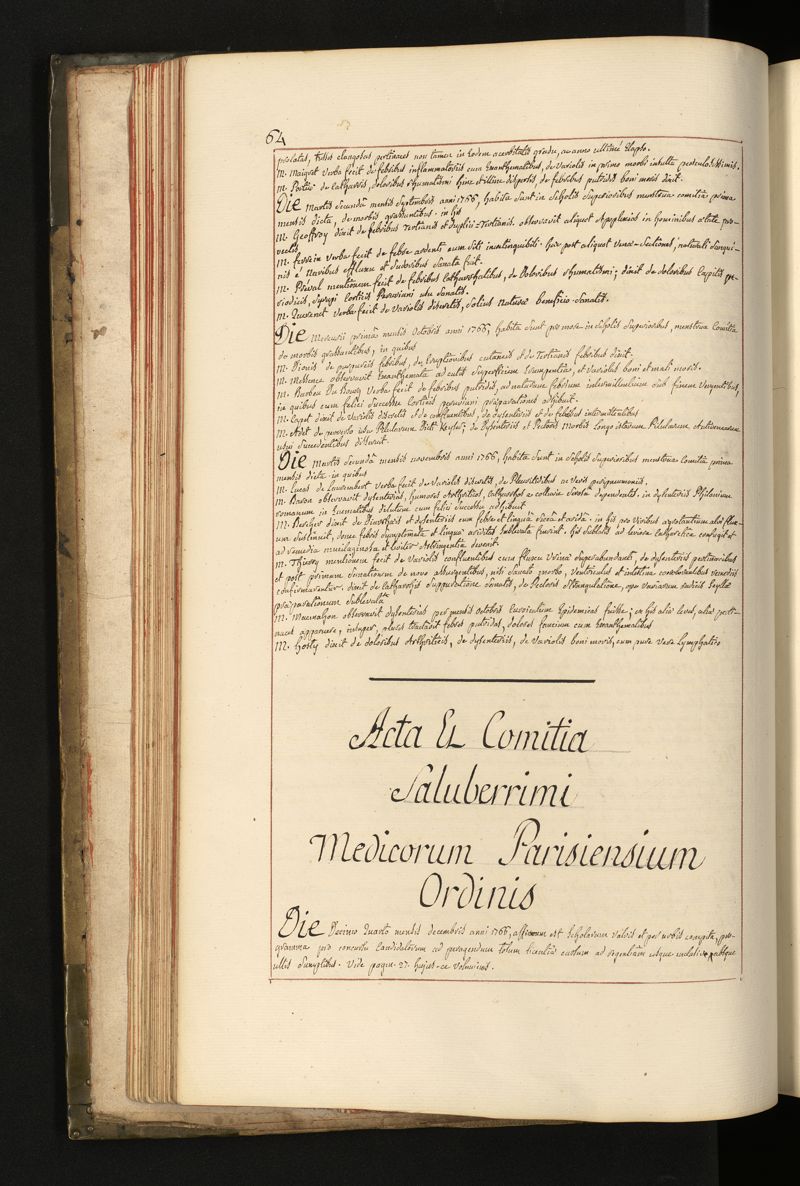 64
prolatus, tussis clangosas pertinaces non tamen in eodem acerbitatis gradu, ac anno ultimè Elapso.
M. Maigret verba fecit de febribus inflammatoriis cum Exanthematibus, de variolis in primo morbi insultu
M. de Catharris, doloribus rhumatismi hinc et illinc dispersis, de febribus putridis boni moris dixit.
Die Martis Secundâ mensis Septembris anni 1766, habita sunt in Scholis Superioribus menstrua comitia prima
mensis dicta, de morbis grassantibus. in his
M. Geoffroy dixit de febribus Tertianis et duplici-Tertianis. observavit aliquot Apoplexias in hominibus ætate pro-
vectis.
M. verba fecit de febre ardenti cum siti inextinguibili. quæ post aliquot venæ-Sectiones, naturali Sangui-
nis è Naribus fluxu et Sudoribus Sanata fuit.
M. mentionem fecit de febribus Catharrhalibus, de doloribus rhumatismi; dixit de doloribus Capitis pe-
riodicis, Syrupi Corticis Peruviani usu Sanatis.
M. verba fecit de variolis discretis, solius naturæ beneficio Sanatis.
Die Mercurii primâ mensis Octobris anni 1766, habita sunt pro more in Scholis Superioribus, menstrua Comitia
de morbis grassantibus, in quibus
M. Dionis de purpureis febribus, de Eruptionibus cutaneis et de Tertianis febribus dixit.
M. observavit Exanthemata ad cutis superficiem Erumpentia, et variolas boni et mali moris.
M. Barbeu Du Bourg verba fecit de febribus putridis, ad naturam febrium intermittentium sub finem vergentibus,
in quibus cum felici successu Corticis peruviani præparationes adhibuit.
M. dixit de variolis discretis et de confluentibus, de dysenteriis et de febribus intermittentibus
M. de usu Pilularum de Dysenteriis et Pectoris Morbis longo istarum Pilularum
usui Succedentibus disseruit.
Die Martis Secundâ mensis novembris anni 1766, habita sunt in Scholis Superioribus menstrua Comitia prima
mensis dicta in quibus
M. Lucas de Laurembert verba fecit de variolis discretis, de Pleuritidibus ac veris peripneumoniis.
M. Baron observavit dysenterias, humores Arthriticos, catharrhos a colluvie Serosâ dependentes. in dysenteriis Philonium
romanum in Enematibus dilutum cum felici Successu adhibuit
M. Bercher dixit de Diarrhæis et dysenteriis cum febre et linguâ Siccâ et aridâ. in his pro viribus ægrotantium alvi flux-
um Sustinuit, donec febris Symptomata et linguæ ariditas Sublevata fuerint. his Sublatis ad leviora Cathartica confugit et
ad remedia mucilaginosa et leviter Astringentia devenit.
M. Thierry mentionem fecit de variolis confluentibus cum fluxu Urinæ Superabundanti, de dysenteriis pertinacibus
et post primam Sanationem de novo assurgentibus, nisi Sanato morbo, ventriculus et intestina corroborantibus remediis
confirmarentur. dixit de Catharrosis Suppuratione Sanatis, de Pectoris Strangulatione, ope variarum radicis Scyllæ
præparationum Sublevatâ
M. Macmahon observavit dysenterias per mensis Octobris Curriculum Epidemicas fuisse; ex his aliæ leves, aliæ perti-
naces apparuere, integer, plures tractavit febres putridas, dolores faucium cum Exanthematibus
M. Hosty dixit de doloribus Arthriticis, de dysenteriis, de variolis boni moris, cum pure vere Lymphatico
Acta Et Comitia
Saluberrimi
Medicorum Parisiensium
Ordinis
Die Decimo Quarto mensis decembris anni 1766, affixum est Scholarum valvis et per urbis compita, pro-
gramma pro concursu Candidatorum ad peragendum totum licentiæ cursum ad regentiam usque inclusive absque
ullis Sumptibus. Vide pagin. 27. hujus-ce voluminis.